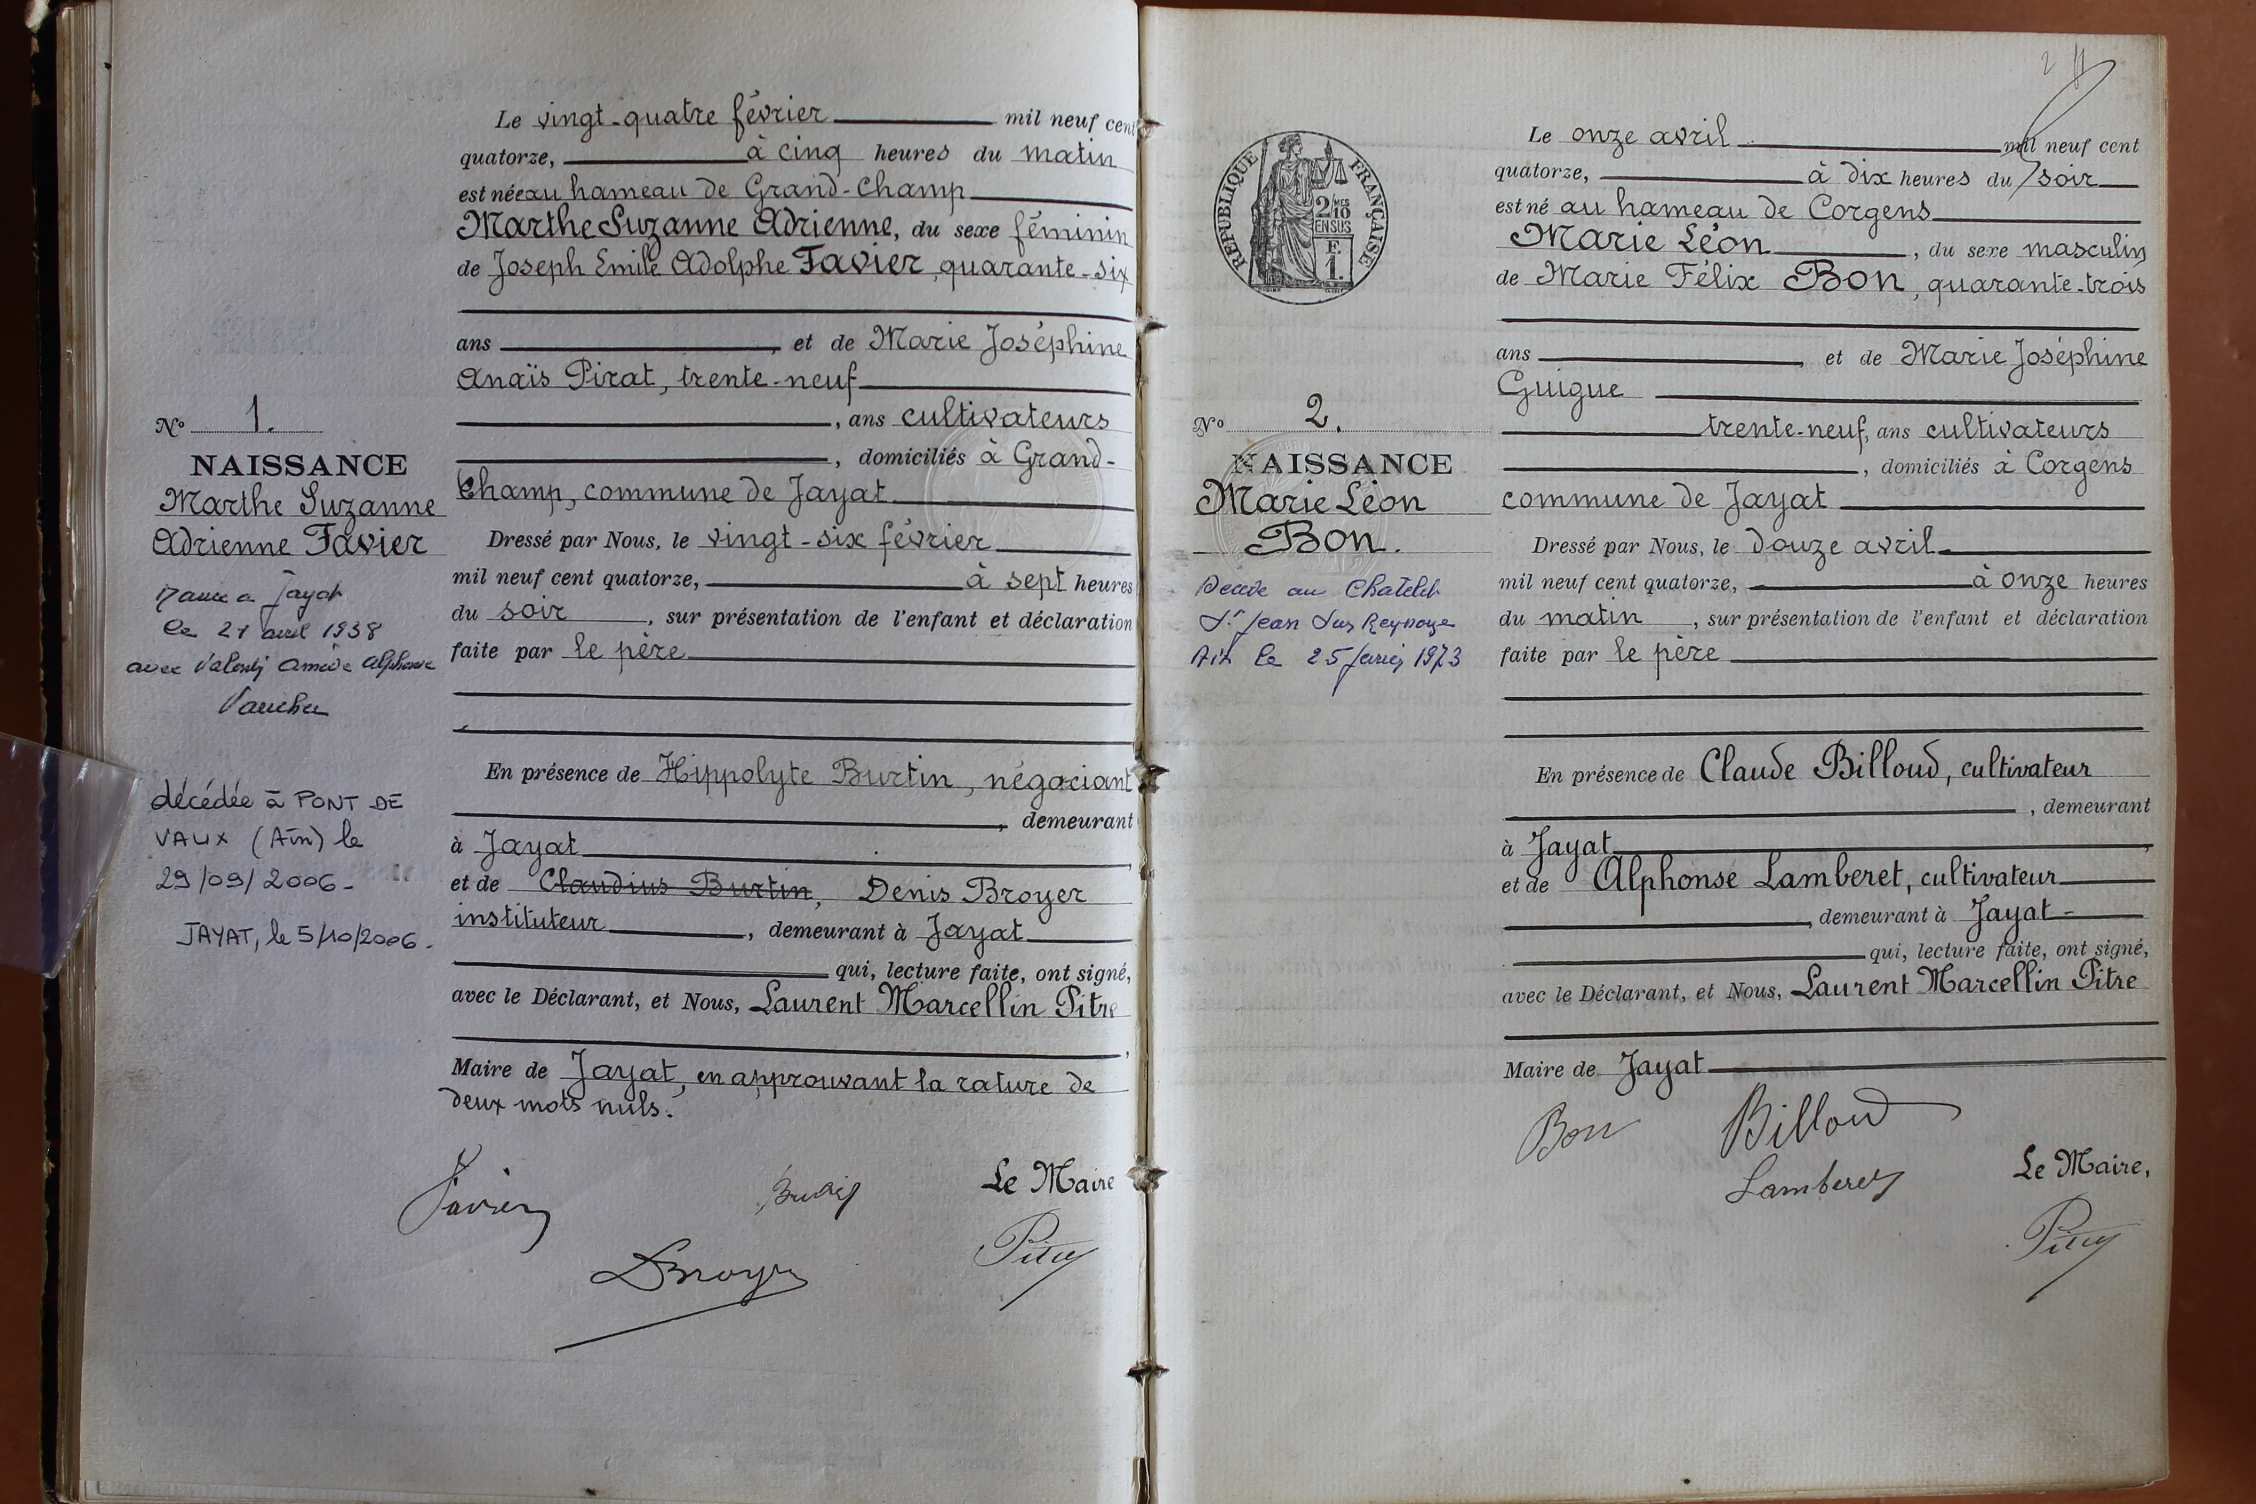 Le vingt-quatre février mil neuf cent
quatorze, à cinq heures du matin
est née au hameau de Grand-Champ
Marthe Suzanne Adrienne, du sexe féminin
de Joseph Emile Adolphe Favier, quarante-six
ans, et de Marie Joséphine
Anaïs Pirat, trente-neuf
, ans cultivateurs
, domiciliés à Grand-
Champ, commune de Jayat
Dressé par Nous, le vingt-six février
mil neuf cent quatorze, à sept heures
du soir, sur présentation de l'enfant et déclaration
faite par le père
En présence de Hippolyte Burtin, négociant
, demeurant
à Jayat
et de Claudius Burtin, Denis Broyer
instituteur, demeurant à Jayat
qui, lecture faite, ont signé,
avec le Déclarant, et Nous, Laurent Marcellin Pitre
Maire de Jayat, en approuvant la rature de
deux mots nuls.
Favier
Le Maire
DBroyer
No 1.
NAISSANCE
Marthe Suzanne
Adrienne Favier
à Jayat
le avril 1938
avec Amédée Alphonse
décédée à PONT DE
VAUX (Ain) le
29/09/2006-
JAYAT, le 5/10/2006.
2
RÉPUBLIQUE FRANÇAISE
2/10 MES
EN SUS
F.
1.
No 2.
NAISSANCE
Marie Léon
Bon.
Décédé au Chatelet
St Jean sur Reyssouze
Ain le 25 1973
Le onze avril mil neuf cent
quatorze, à dix heures du soir
est né au hameau de Corgens
Marie Léon, du sexe masculin
de Marie Félix Bon, quarante-trois
ans, et de Marie Joséphine
Guigue
trente-neuf, ans cultivateurs
, domiciliés à Corgens
commune de Jayat
Dressé par Nous, le douze avril
mil neuf cent quatorze, à onze heures
du matin, sur présentation de l'enfant et déclaration
faite par le père
En présence de Claude Billoud, cultivateur
, demeurant
à Jayat,
et de Alphonse Lamberet, cultivateur
, demeurant à Jayat-
qui, lecture faite, ont signé,
avec le Déclarant, et Nous, Laurent Marcellin Pitre
Maire de Jayat
Bon
Billoud
Lamberet
Le Maire,